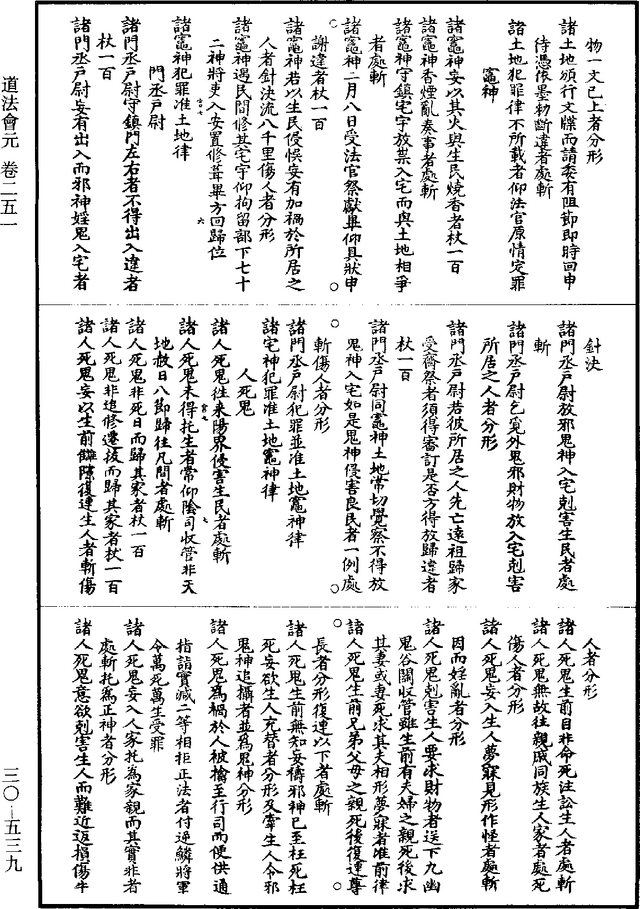 物一文已上者分形
諸土地頒行文牒而請委有阻節即時回申
待憑依墨勑斷違者處斬
諸土地犯罪律不所載者仰法官原情定罪
竈神
諸竈神妄以其火與生民燒香者杖一百
諸竈神香煙亂奏事者處斬
諸竈神守鎮宅宇放祟入宅而與土地相爭
者處斬
諸竈神二月八日受法官祭獻畢仰具狀申
謝違者杖一百
諸竈神若以生民侵悞妄有加禍於所居之
人者針決流八千里傷人者分形
諸竈神遇民間修其宅宇仰拘留部下七十
二神將吏入安置修葺畢方回歸位
諸竈神犯罪准土地律
門丞戶尉
諸門丞戶尉守鎮門左右者不得出入違者
杖一百
諸門丞戶尉妄有出入而邪神婬鬼入宅者
針決
諸門丞戶尉放邪鬼神入宅剋害生民者處
斬
諸門丞戶尉乞覓外鬼邪財物放入宅剋害
所居之人者分形
諸門丞戶尉若彼所居之人先亡遠祖歸家
受齋祭者須得審訂是否方得放歸違者
杖一百
諸門丞戶尉同竈神土地常切覺察不得放
鬼神入宅如是鬼神侵害良民者一例處
斬傷人者分形
諸門丞戶尉犯罪並准土地竈神律
諸宅神犯罪准土地竈神律
人死鬼
諸人死鬼往來陽界侵害生民者處斬
諸人死鬼未得托生者常仰陰司收管非天
地赦日八節歸往凡間者處斬
諸人死鬼非死日而歸其家者杖一百
諸人死鬼非追修遷拔而歸其家者杖一百
諸人死鬼妄以生前讎隙復連生人者斬傷
人者分形
諸人死鬼生前自非命死注訟生人者處斬
諸人死鬼無故往親戚同族生人家者處死
傷人者分形
諸人死鬼妄入生人夢寐見形作怪者處斬
因而婬亂者分形
諸人死鬼剋害生人要求財物者送下九幽
鬼谷關收管雖生前有夫婦之親死後求
其妻或妻死求其夫相形夢寐者准前律
諸人死鬼生前兄弟父母之親死後復連尊
長者分形復連以下者處斬
諸人死鬼生前無知妄禱邪神已至枉死枉
死妄欲生人充替者分形及牽生人令邪
鬼神追攝者並為鬼神分形
諸人死鬼為禍於人被擒至行司而便供通
指詣實減二等相拒正法者付逆鱗將軍
令萬死萬生受罪
諸人死鬼妄入人家托為家親而其實非者
處斬托為正神者分形
諸人死鬼意欲剋害生人而難近返損傷牛
道法會元 卷二五一
三〇-五三九